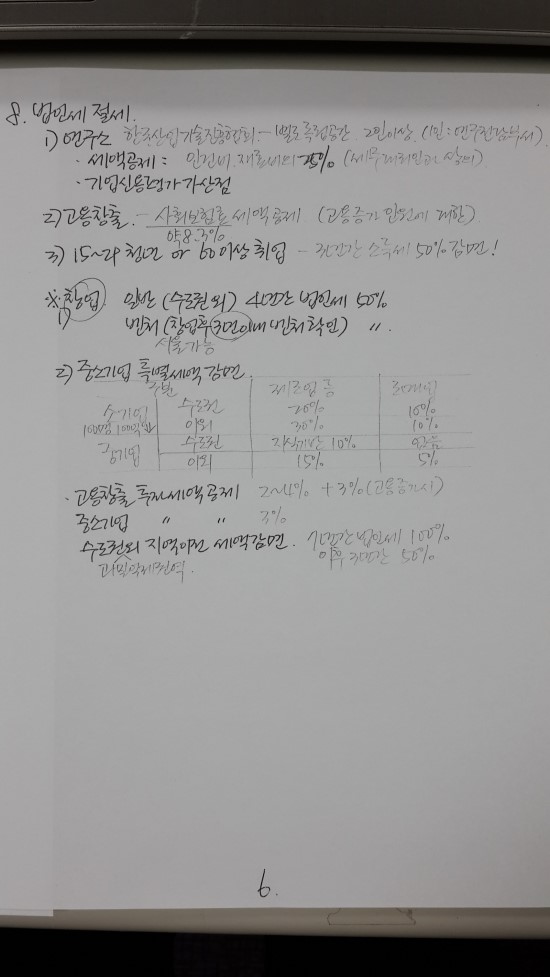 8. 법인세 절세.
1) 연구소 한국산업기술진흥협회 - 별도독립공간. 2인이상. (1인: 연구전담부서)
· 세액공제 : 인건비. 재료비의 25% (세무대리인과 상의)
· 기업신용평가 가산점
2) 고용창출. - 사회보험료 세액공제. (고용증가 인원에 대한)
약 8.3%
3) 15~29 청년 or 60이상 취업 - 3년간 소득세 50% 감면!
※ 창업 일반 (수도권 외) 4년간 법인세 50%
1) 벤처 (창업후 3년이내 벤처 확인) 〃.
서울가능
2) 중소기업 특별세액 감면.
구분 제조업 등 도매업
소기업 수도권 20% 10%
100명 100억 이외 30% 10%
중기업 수도권 지식기반 10% 없음
이외 15% 5%
· 고용창출 투자세액공제 2~4% + 3% (고용증가시)
중소기업 〃 〃 3%
수도권외 지역이전 세액감면. 7년간 법인세 100%
과밀억제권역. 이후 3년간 50%
6.